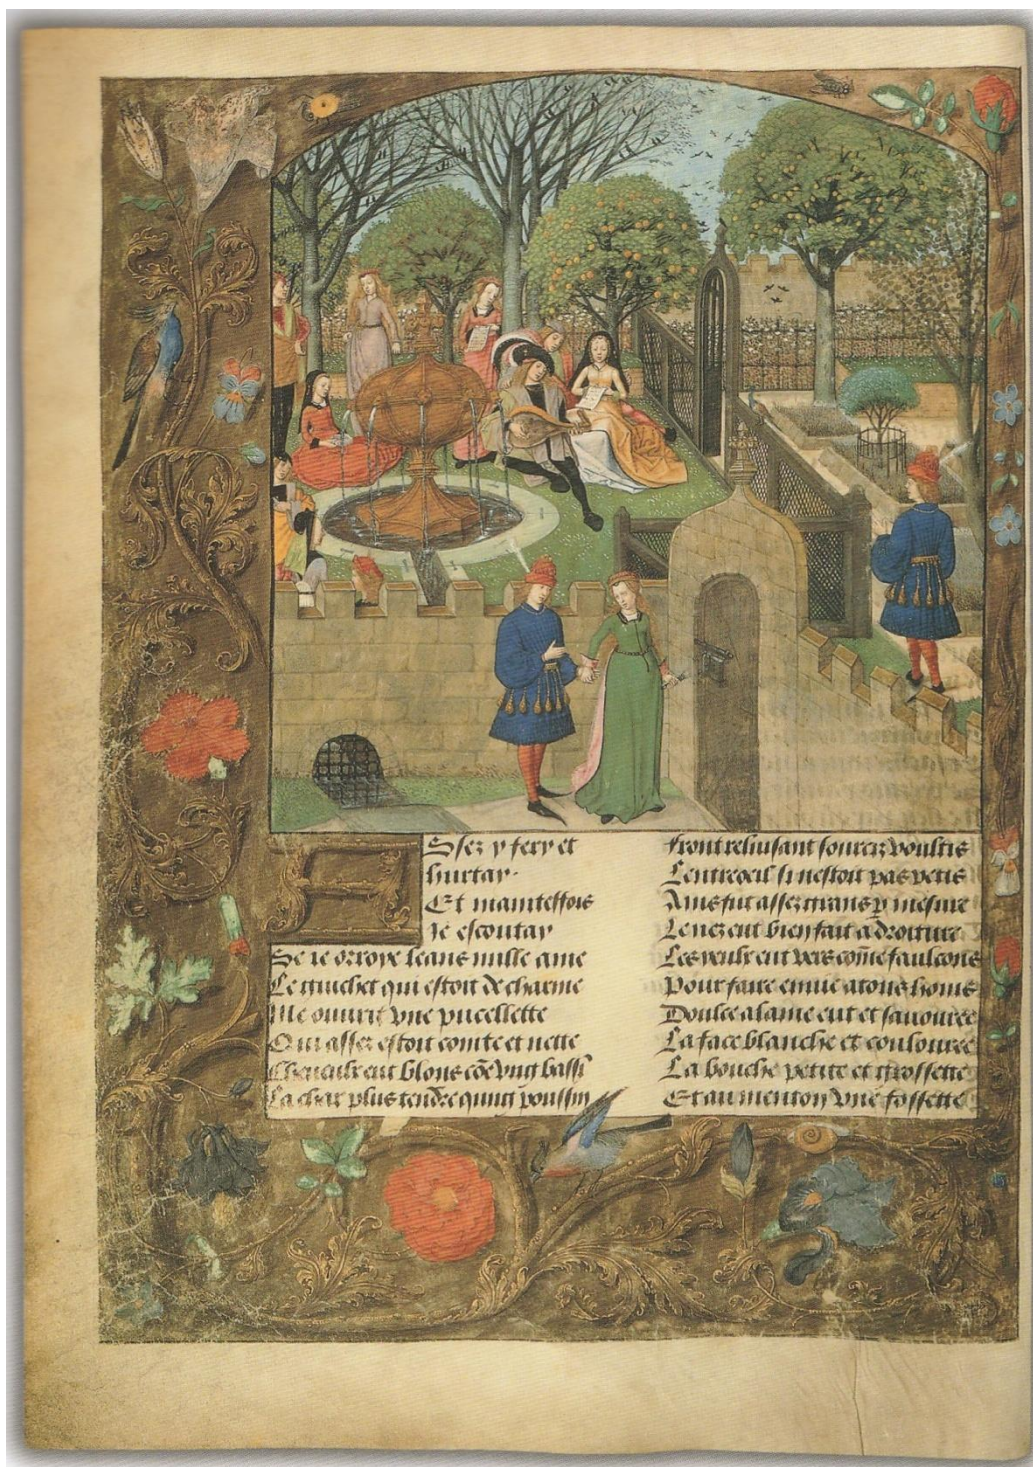 Assez y fery et
hurtay.
Et mainteffois
Je escoutay
Se ie orroye leans nulle ame
Le guichet qui estoit de charme
Me ouurit vne pucellette
Qui assez estoit cointe et nette
Cheueulx eut blons cõe vng bassĩ
La char plus tendre quung poussin
Front reluisant sourciz voultis
Lentreoeil si nestoit pas petis
Ains fut assez grans p̱ mesure
Le nez eut bien fait a droiture
Les yeulx eut vers cõme faulcons
Pour faire enuie a tous homs
Doulce alaine eut et sauouree
La face blanche et coulouree
La bouche petite et grossette
Et au menton vne fossette